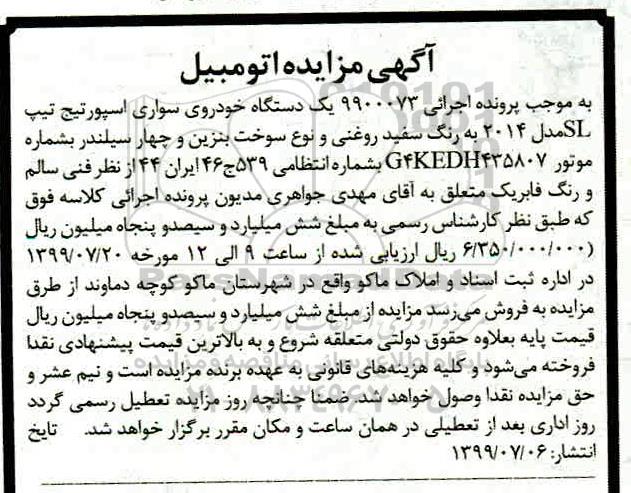 آگهی مزایده اتومبیل
به موجب پرونده اجرائی ۹۹۰۰۰۷۳ یک دستگاه خودروی سواری اسپورتیج تیپ
SL مدل ۲۰۱۴ به رنگ سفید روغنی و نوع سوخت بنزین و چهار سیلندر بشماره
موتور G۴KEDH۴۳۵۸۰۷ بشماره انتظامی ۵۳۹ج۴۶ ایران ۴۴ از نظر فنی سالم
و رنگ فابریک متعلق به آقای مهدی جواهری مدیون پرونده اجرائی کلاسه فوق
که طبق نظر کارشناس رسمی به مبلغ شش میلیارد و سیصدو پنجاه میلیون ریال
(۶/۳۵۰/۰۰۰/۰۰۰ ریال ارزیابی شده از ساعت ۹ الی ۱۲ مورخه ۱۳۹۹/۰۷/۲۰
در اداره ثبت اسناد و املاک ماکو واقع در شهرستان ماکو کوچه دماوند از طرق
مزایده به فروش می‌رسد مزایده از مبلغ شش میلیارد و سیصدو پنجاه میلیون ریال
قیمت پایه بعلاوه حقوق دولتی متعلقه شروع و به بالاترین قیمت پیشنهادی نقدا
فروخته می‌شود و کلیه هزینه‌های قانونی به عهده برنده مزایده است و نیم عشر و
حق مزایده نقدا وصول خواهد شد. ضمنا چنانچه روز مزایده تعطیل رسمی گردد
روز اداری بعد از تعطیلی در همان ساعت و مکان مقرر برگزار خواهد شد. تایخ
انتشار: ۱۳۹۹/۰۷/۰۶